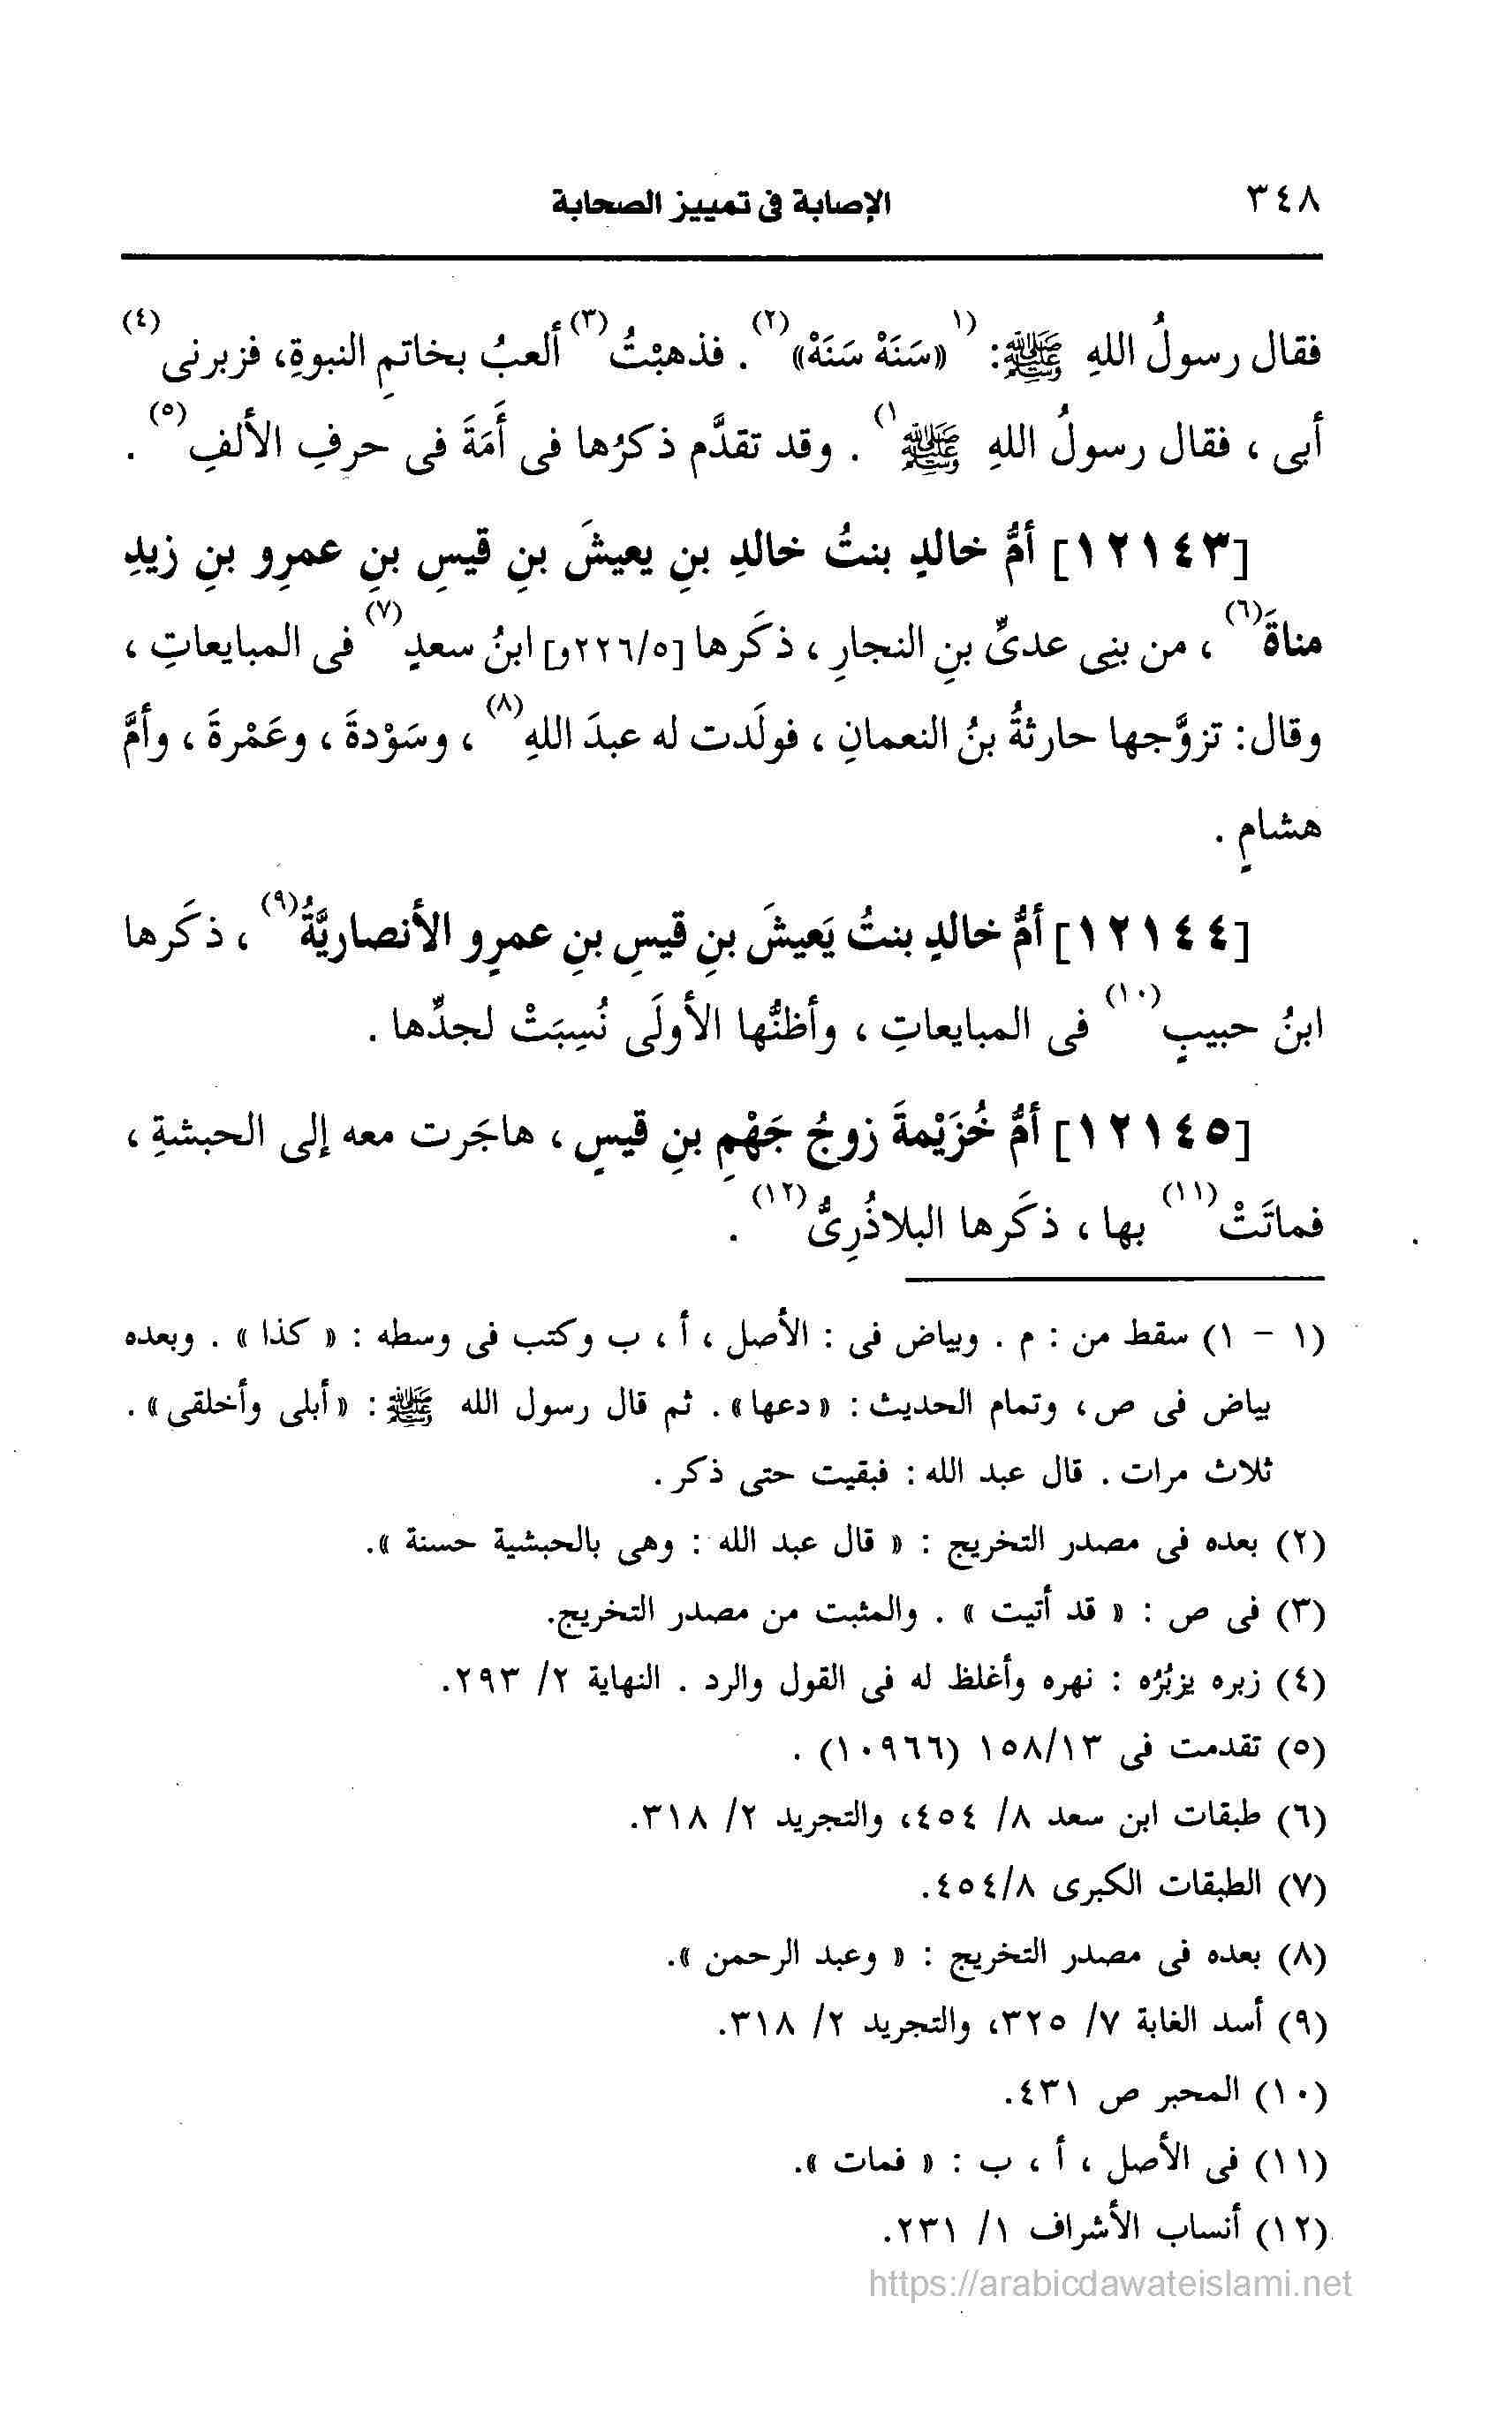 ٣٤٨ الإصابة فى تمييز الصحابة
فقال رسولُ اللهِ ﷺ: (١«سَنَهْ سَنَهْ»(٢). فذهبْتُ(٣) ألعبُ بخاتمِ النبوةِ، فزبرنى(٤)
أبى ، فقال رسولُ اللهِ ﷺ ١). وقد تقدَّم ذكرُها فى أَمَةَ فى حرفِ الألفِ(٥) .
[١٢١٤٣] أمُّ خالدٍ بنتُ خالدِ بنِ يعيشَ بنِ قيسِ بنِ عمرِو بنِ زيدِ
مناةَ(٦) ، من بنِى عدىِّ بنِ النجارِ ، ذكَرها [٢٢٦/٥و] ابنُ سعدٍ(٧) فى المبايعاتِ ،
وقال: تزوَّجها حارثةُ بنُ النعمانِ ، فولَدت له عبدَ اللهِ(٨) ، وسَوْدةَ ، وعَمْرةَ ، وأمَّ
هشامٍ .
[١٢١٤٤] أمُّ خالدٍ بنتُ يَعيشَ بنِ قيسِ بنِ عمرٍو الأنصاريَّةُ(٩) ، ذكَرها
ابنُ حبيبٍ(١٠) فى المبايعاتِ ، وأظنُّها الأولَى نُسِبَتْ لجدِّها .
[١٢١٤٥] أمُّ خُزَيْمةَ زوجُ جَهْمِ بنِ قيسٍ ، هاجَرت معه إلى الحبشةِ ،
فماتَتْ(١١) بها ، ذكَرها البلاذُرِىُّ(١٢) .
(١ - ١) سقط من : م . وبياض فى : الأصل ، أ ، ب وكتب فى وسطه : « كذا » . وبعده
بياض فى ص، وتمام الحديث : «دعها». ثم قال رسول الله ﷺ : «أبلى وأخلقى» .
ثلاث مرات . قال عبد الله : فبقيت حتى ذكر .
(٢) بعده فى مصدر التخريج : « قال عبد الله : وهى بالحبشية حسنة ».
(٣) فى ص : « قد أتيت » . والمثبت من مصدر التخريج.
(٤) زبره يزبُرُه : نهره وأغلظ له فى القول والرد . النهاية ٢/ ٢٩٣.
(٥) تقدمت فى ١٥٨/١٣ (١٠٩٦٦) .
(٦) طبقات ابن سعد ٨/ ٤٥٤، والتجريد ٢/ ٣١٨.
(٧) الطبقات الكبرى ٤٥٤/٨.
(٨) بعده فى مصدر التخريج : « وعبد الرحمن ».
(٩) أسد الغابة ٧/ ٣٢٥، والتجريد ٢/ ٣١٨.
(١٠) المحبر ص ٤٣١.
(١١) فى الأصل ، أ ، ب : « فمات ».
(١٢) أنساب الأشراف ١/ ٢٣١.
https://arabicdawateislami.net